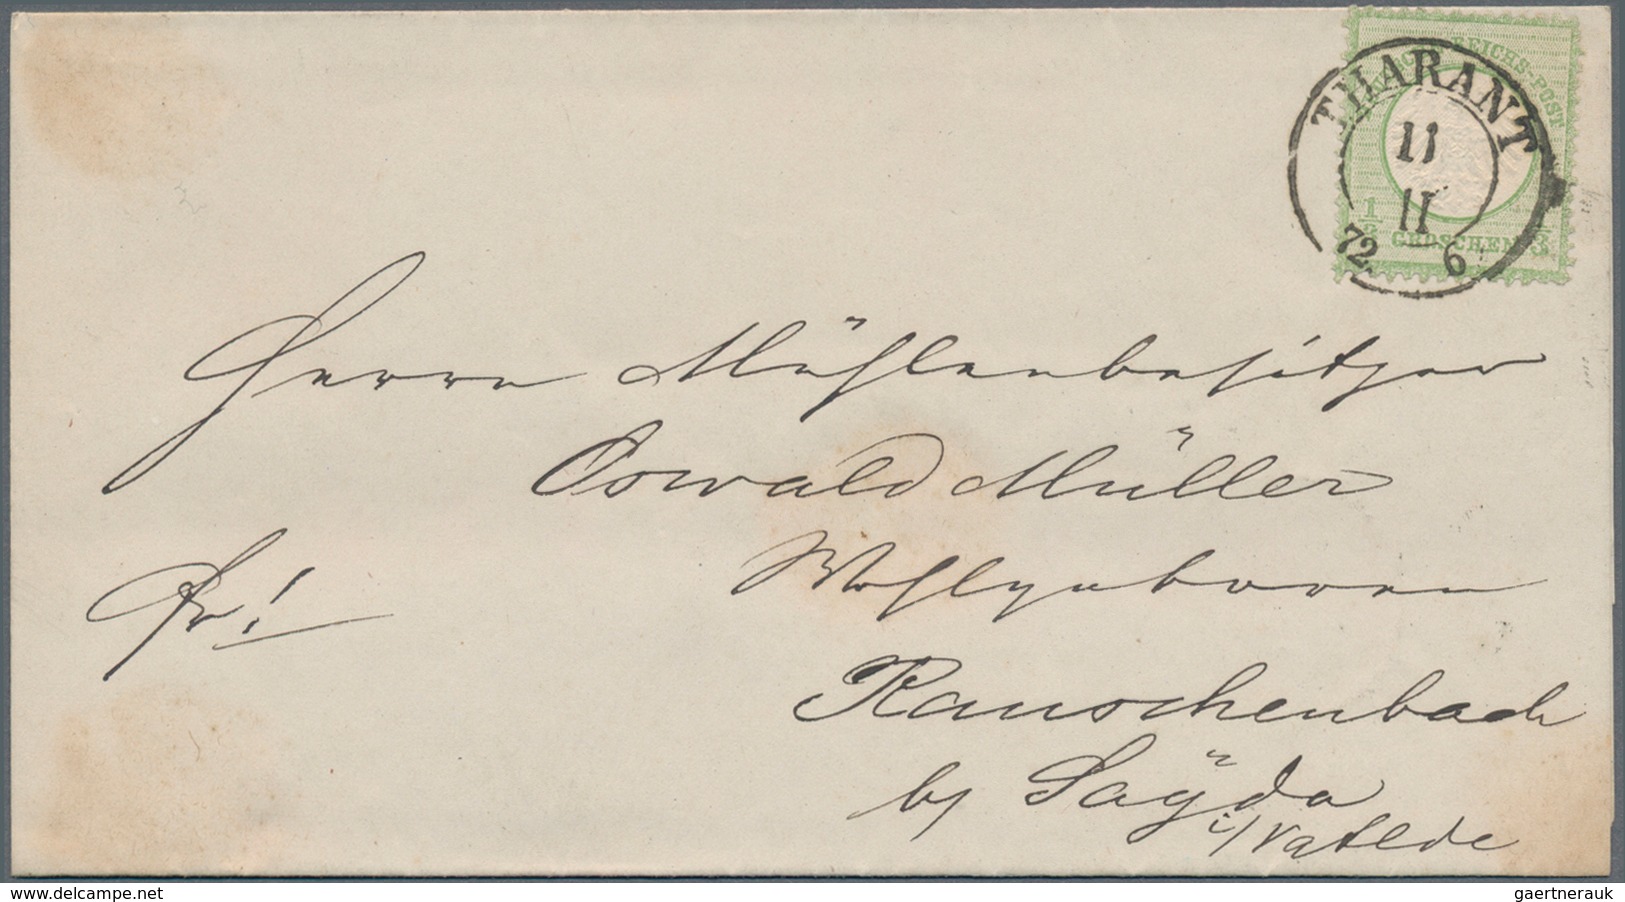 DEUTSCHE REICHS-POST
1/3 GROSCHEN 1/3
THARANT
11
11
72. 6
Herrn Mühlenbesitzer
Oswald Müller
Wohlgeboren
Fr!
Rauschenbach
by Saÿda
i/
delcampe.net
gaertnerauk